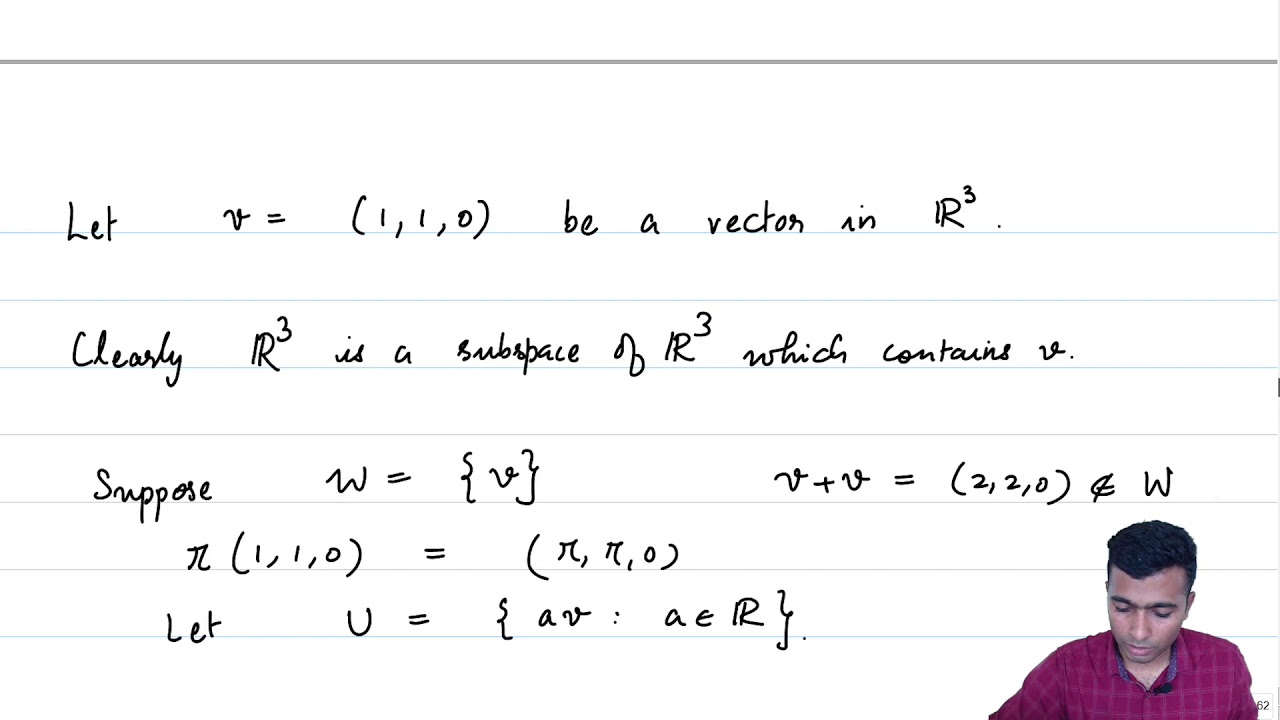 Let v = (1, 1, 0) be a vector in ℝ³.
Clearly ℝ³ is a subspace of ℝ³ which contains v.
Suppose W = {v} v+v = (2, 2, 0) ∉ W
π(1, 1, 0) = (π, π, 0)
Let U = {av : a ∈ ℝ}.
62